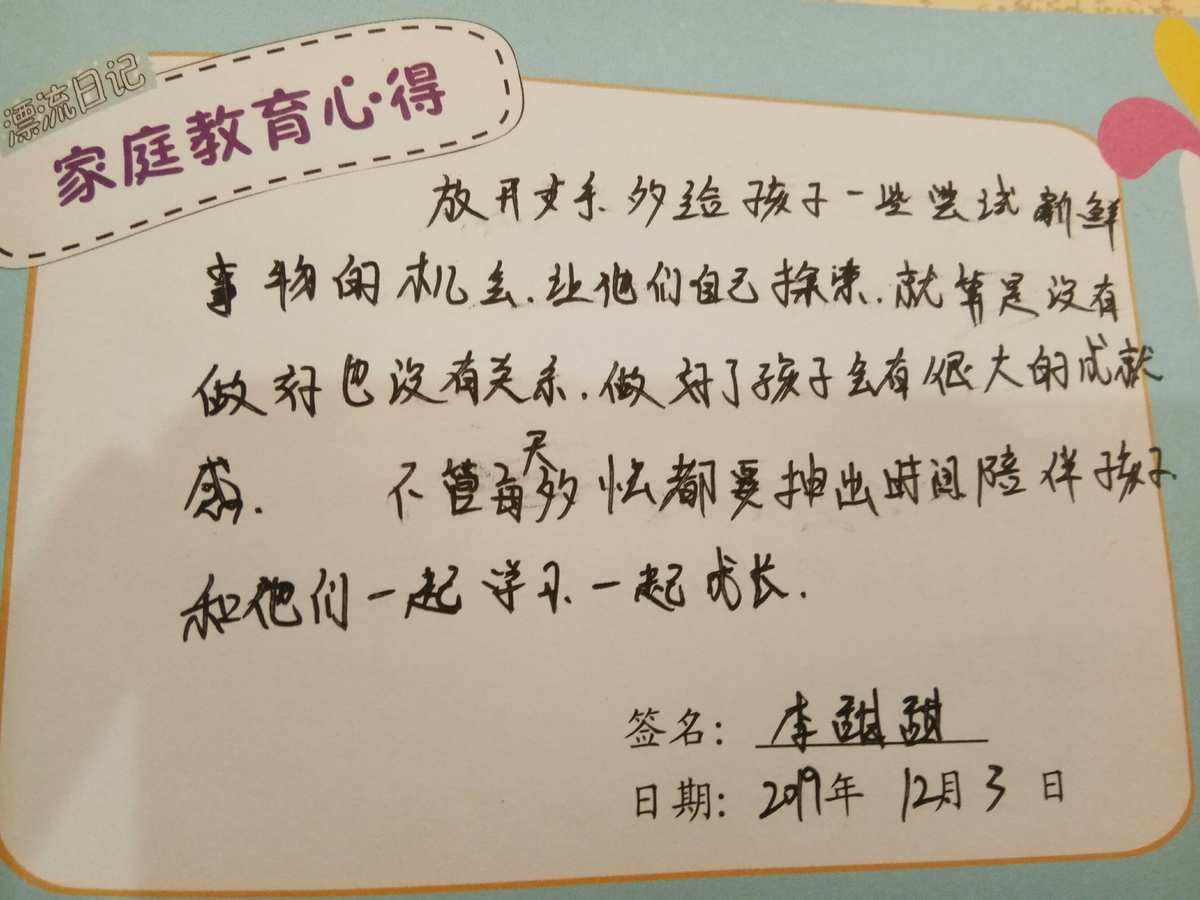 漂流日记
家庭教育心得
放开双手.多给孩子一些尝试新鲜
事物的机会.让他们自己探索.就算是没有
做好也没有关系.做好了孩子会有很大的成就
感. 不管每天多忙都要抽出时间陪伴孩子
和他们一起学习.一起成长.
签名: 李甜甜
日期: 2019年 12月 3 日